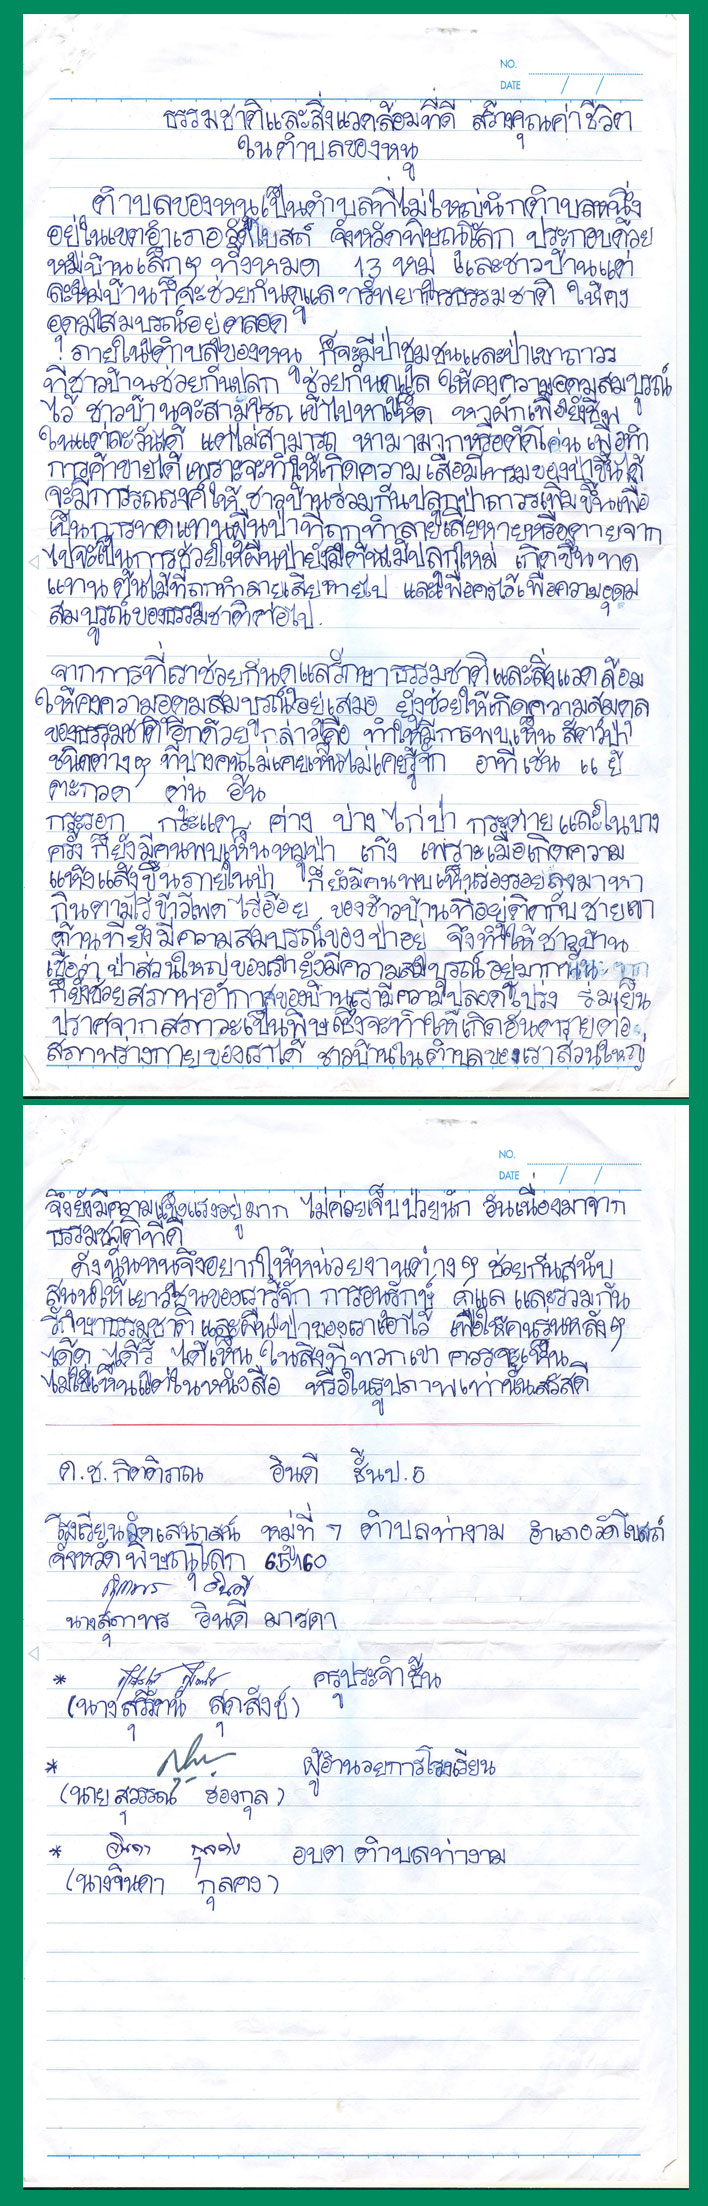 NO.
DATE / /
ธรรมชาติและสิ่งแวดล้อมที่ดี สร้างคุณค่าชีวิต
ในตำบลของหนู
ตำบลของหนูเป็นตำบลที่ไม่ใหญ่นักตำบลหนึ่ง
อยู่ในเขตอำเภอวัดโบสถ์ จังหวัดพิษณุโลก ประกอบด้วย
หมู่บ้านเล็กๆ ทั้งหมด 13 หมู่ และชาวบ้านแต่
ละหมู่บ้านก็จะช่วยกันดูแลทรัพยากรธรรมชาติ ให้คง
อุดมสมบูรณ์อยู่ตลอด
ภายในตำบลของหนู ก็จะมีป่าชุมชนและป่าเขาถาวร
ที่ชาวบ้านช่วยกันปลูก ช่วยกันดูแล ให้คงความอุดมสมบูรณ์
ไว้ ชาวบ้านจะสามารถ เข้าไปหาเห็ด หาผักเพื่อยังชีพ
ในแต่ละวันได้ แต่ไม่สามารถ หามามากหรือตัดโค่น เพื่อทำ
การค้าขายได้เพราะจะทำให้เกิดความเสื่อมโทรมของป่าขึ้นได้
จะมีการรณรงค์ให้ ชาวบ้านร่วมกันปลูกป่าถาวรเพิ่มขึ้นเพื่อ
เป็นการทดแทนผืนป่าที่ถูกทำลายเสียหายหรือตายจาก
ไปจะเป็นการช่วยให้ผืนป่ายังมีต้นไม้ปลูกใหม่ เกิดขึ้นทด
แทน ต้นไม้ที่ถูกทำลายเสียหายไป และเพื่อคงไว้เพื่อความอุดม
สมบูรณ์ของธรรมชาติต่อไป.
จากการที่เราช่วยกันดูแลรักษาธรรมชาติและสิ่งแวดล้อม
ให้คงความอุดมสมบูรณ์อยู่เสมอ ยังช่วยให้เกิดความสมดุล
ของธรรมชาติอีกด้วย กล่าวคือ ทำให้มีการพบเห็น สัตว์ป่า
ชนิดต่างๆ ที่บางคนไม่เคยเห็นไม่เคยรู้จัก อาทิเช่น แย้
ตะกวด ตุ่น อ้น
กระรอก กระแต ค่าง บ่าง ไก่ป่า กระต่าย และในบาง
ครั้ง ก็ยังมีคนพบเห็นหมูป่า เก้ง เพราะเมื่อเกิดความ
แห้งแล้งขึ้นภายในป่า ก็ยังมีคนพบเห็นร่องรอยลงมาหา
กินตามไร่ข้าวโพด ไร่อ้อย ของชาวบ้านที่อยู่ติดกับชายเขา
ด้านที่ยังมีความสมบูรณ์ของป่าอยู่ จึงทำให้ชาวบ้าน
เชื่อว่า ป่าส่วนใหญ่ของเรายังมีความสมบูรณ์อยู่มาก
ก็ยังช่วยสภาพอากาศของบ้านเรามีความปลอดโปร่ง ร่มเย็น
ปราศจากสภาวะเป็นพิษซึ่งจะทำให้เกิดอันตรายต่อ
สภาพร่างกายของเราได้ ชาวบ้านในตำบลของเราส่วนใหญ่
NO.
DATE / /
จึงยังมีความแข็งแรงอยู่มาก ไม่ค่อยเจ็บป่วยนัก อันเนื่องมาจาก
ธรรมชาติที่ดี
ดังนั้นหนูจึงอยากให้หน่วยงานต่างๆ ช่วยกันสนับ
สนุนให้เยาวชนของเรารู้จัก การอนุรักษ์ ดูแล และร่วมกัน
รักษาธรรมชาติ และผืนป่าของเราเอาไว้ เพื่อให้คนรุ่นหลังๆ
ได้ดู ได้รู้ ได้เห็น ในสิ่งที่พวกเขา ควรจะเห็น
ไม่ใช่เห็นแต่ในหนังสือ หรือในรูปภาพเท่านั้นสวัสดี
ด.ช.กิตติภณ อินดี ชั้นป.5
โรงเรียนวัดเสนาสน์ หมู่ที่ 7 ตำบลท่างาม อำเภอวัดโบสถ์
จังหวัดพิษณุโลก 65160
สุภาพร อินดี
นางสุภาพร อินดี มารดา
* ครูประจำชั้น
(นางสุรีรัตน์ สุดสังข์)
* ผู้อำนวยการโรงเรียน
(นายสุวรรณ ฮองกุล)
* จินดา กุลคง อบต ตำบลท่างาม
(นางจินดา กุลคง)